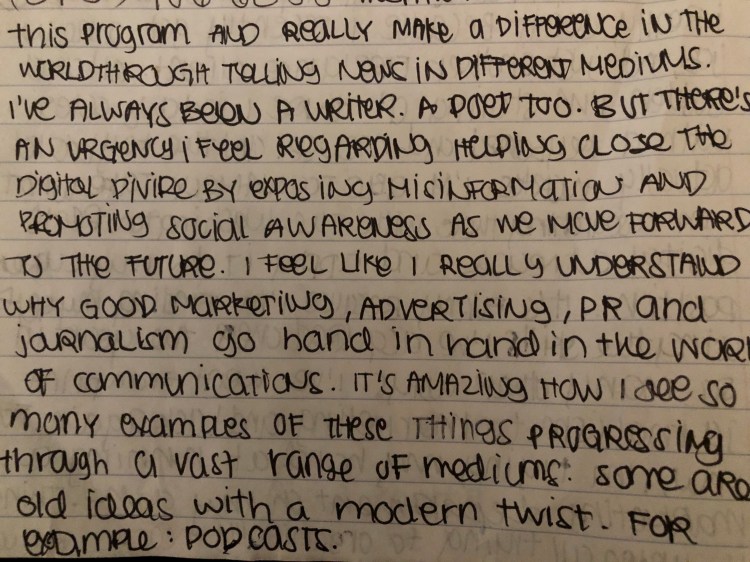 this program AND REALLY MAKE a DIFFERENCE IN THE
WORLD THROUGH TELLING NEWS IN DIFFERENT MEDIUMS.
I'VE ALWAYS BEEN A WRITER. A POET TOO. BUT THERE'S
AN URGENCY i FEEL REGARDING HELPING CLOSE THE
DIGITAL DIVIRE BY EXPOSING MISINFORMATION AND
PROMOTING SOCIAL AWARENESS AS WE MOVE FORWARD
TO THE FUTURE. I FEEL LIKE I REALLY UNDERSTAND
WHY GOOD MARKETING, ADVERTISING, PR and
journalism go hand in hand in the WORL
OF communications. IT'S AMAZING HOW I see so
many examples OF THESE THINGS PROGRESSING
through a vast range OF mediums. some ARE
old ideas with a modern twist. FOR
example: PODCASTS.